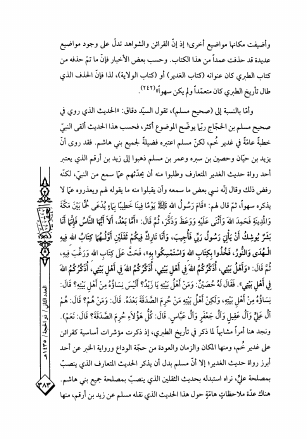 وأضيفت مكانها مواضيع أخرى؛ إذ إنّ القرائن والشواهد تدلّ على وجود مواضيع
عديدة قد حذفت عمداً من هذا الكتاب. وحسب بعض الأخبار فإنّ ما تمّ حذفه من
كتاب الطبري كان عنوانه (كتاب الغدير) أو (كتاب الولاية)، لذا فإنّ الحذف الذي
طال تأريخ الطبري كان متعمّداً ولم يكن سهواً»(٢٤٢)
وأمّا بالنسبة إلى (صحيح مسلم)، تقول السيّد دقاق: «الحديث الذي روي في
صحيح مسلم بن الحجّاج ربّما يوضّح الموضوع أكثر، فحسب هذا الحديث ألقى النبيّ
خطبة عامّة في غدير خُم، لكنّ مسلم اعتبره فضيلة لجميع بني هاشم. فقد روى أنّ
يزيد بن حيّان وحصين بن سبره وعمر بن مسلم ذهبوا إلى زيد بن أرقم الذي يعتبر
أحد رواة حديث الغدير المتعارف وطلبوا منه أن يحدّثهم عمّا سمع من النبيّ، لكنّه
رفض ذلك وقال إنّه نسي بعض ما سمعه وأن يقبلوا منه ما يقوله لهم ويعذروه عمّا لا
يذكره سهواً، ثمّ قال لهم: «قَامَ رَسُولُ اللهِ ﷺ يَوْمًا فِينَا خَطِيبًا بِمَاءٍ يُدْعَى خُمًّا بَيْنَ مَكَّةَ
وَالْمَدِينَةِ فَحَمِدَ اللهَ وَأَثْنَى عَلَيْهِ وَوَعَظَ وَذَكَّرَ، ثُمَّ قَالَ: «أَمَّا بَعْدُ، أَلَا أَيُّهَا النَّاسُ فَإِنَّمَا أَنَا
بَشَرٌ يُوشِكُ أَنْ يَأْتِيَ رَسُولُ رَبِّي فَأُجِيبَ، وَأَنَا تَارِكٌ فِيكُمْ ثَقَلَيْنِ أَوَّلُهُمَا كِتَابُ اللهِ فِيهِ
الْهُدَى وَالنُّورُ، فَخُذُوا بِكِتَابِ اللهِ وَاسْتَمْسِكُوا بِهِ»، فَحَثَّ عَلَى كِتَابِ اللهِ وَرَغَّبَ فِيهِ،
ثُمَّ قَالَ: «وَأَهْلُ بَيْتِي، أُذَكِّرُكُمُ اللهَ فِي أَهْلِ بَيْتِي، أُذَكِّرُكُمُ اللهَ فِي أَهْلِ بَيْتِي، أُذَكِّرُكُمُ اللهَ
فِي أَهْلِ بَيْتِي». فَقَالَ لَهُ حُصَيْنٌ: وَمَنْ أَهْلُ بَيْتِهِ يَا زَيْدُ؟ أَلَيْسَ نِسَاؤُهُ مِنْ أَهْلِ بَيْتِهِ؟ قَالَ:
نِسَاؤُهُ مِنْ أَهْلِ بَيْتِهِ، وَلَكِنْ أَهْلُ بَيْتِهِ مَنْ حُرِمَ الصَّدَقَةَ بَعْدَهُ. قَالَ: وَمَنْ هُمْ؟ قَالَ: هُمْ
آلُ عَلِيٍّ وَآلُ عَقِيلٍ وَآلُ جَعْفَرٍ وَآلُ عَبَّاسٍ. قَالَ: كُلُّ هَؤُلَاءِ حُرِمَ الصَّدَقَةَ؟ قَالَ: نَعَمْ».
ونجد هنا أمراً مشابهاً لما ذكر في تأريخ الطبري، إذ ذكرت مؤشرات أساسية كقرائن
على غدير خُم، ومنها المكان والزمان والعودة من حجّة الوداع ورواية الخبر عن أحد
أبرز رواة حديث الغدير؛ إلا أنّ مسلم بدل أن يذكر الحديث المتعارف الذي ينصبّ
بمصلحة عليّ، نراه استبدله بحديث الثقلين الذي ينصبّ بمصلحة جميع بني هاشم.
هناك عدّة ملاحظات هامّة حول هذا الحديث الذي نقله مسلم عن زيد بن أرقم، منها
العدد الثاني / ذو الحجة / ١٤٣٥هـ
٣٨٣